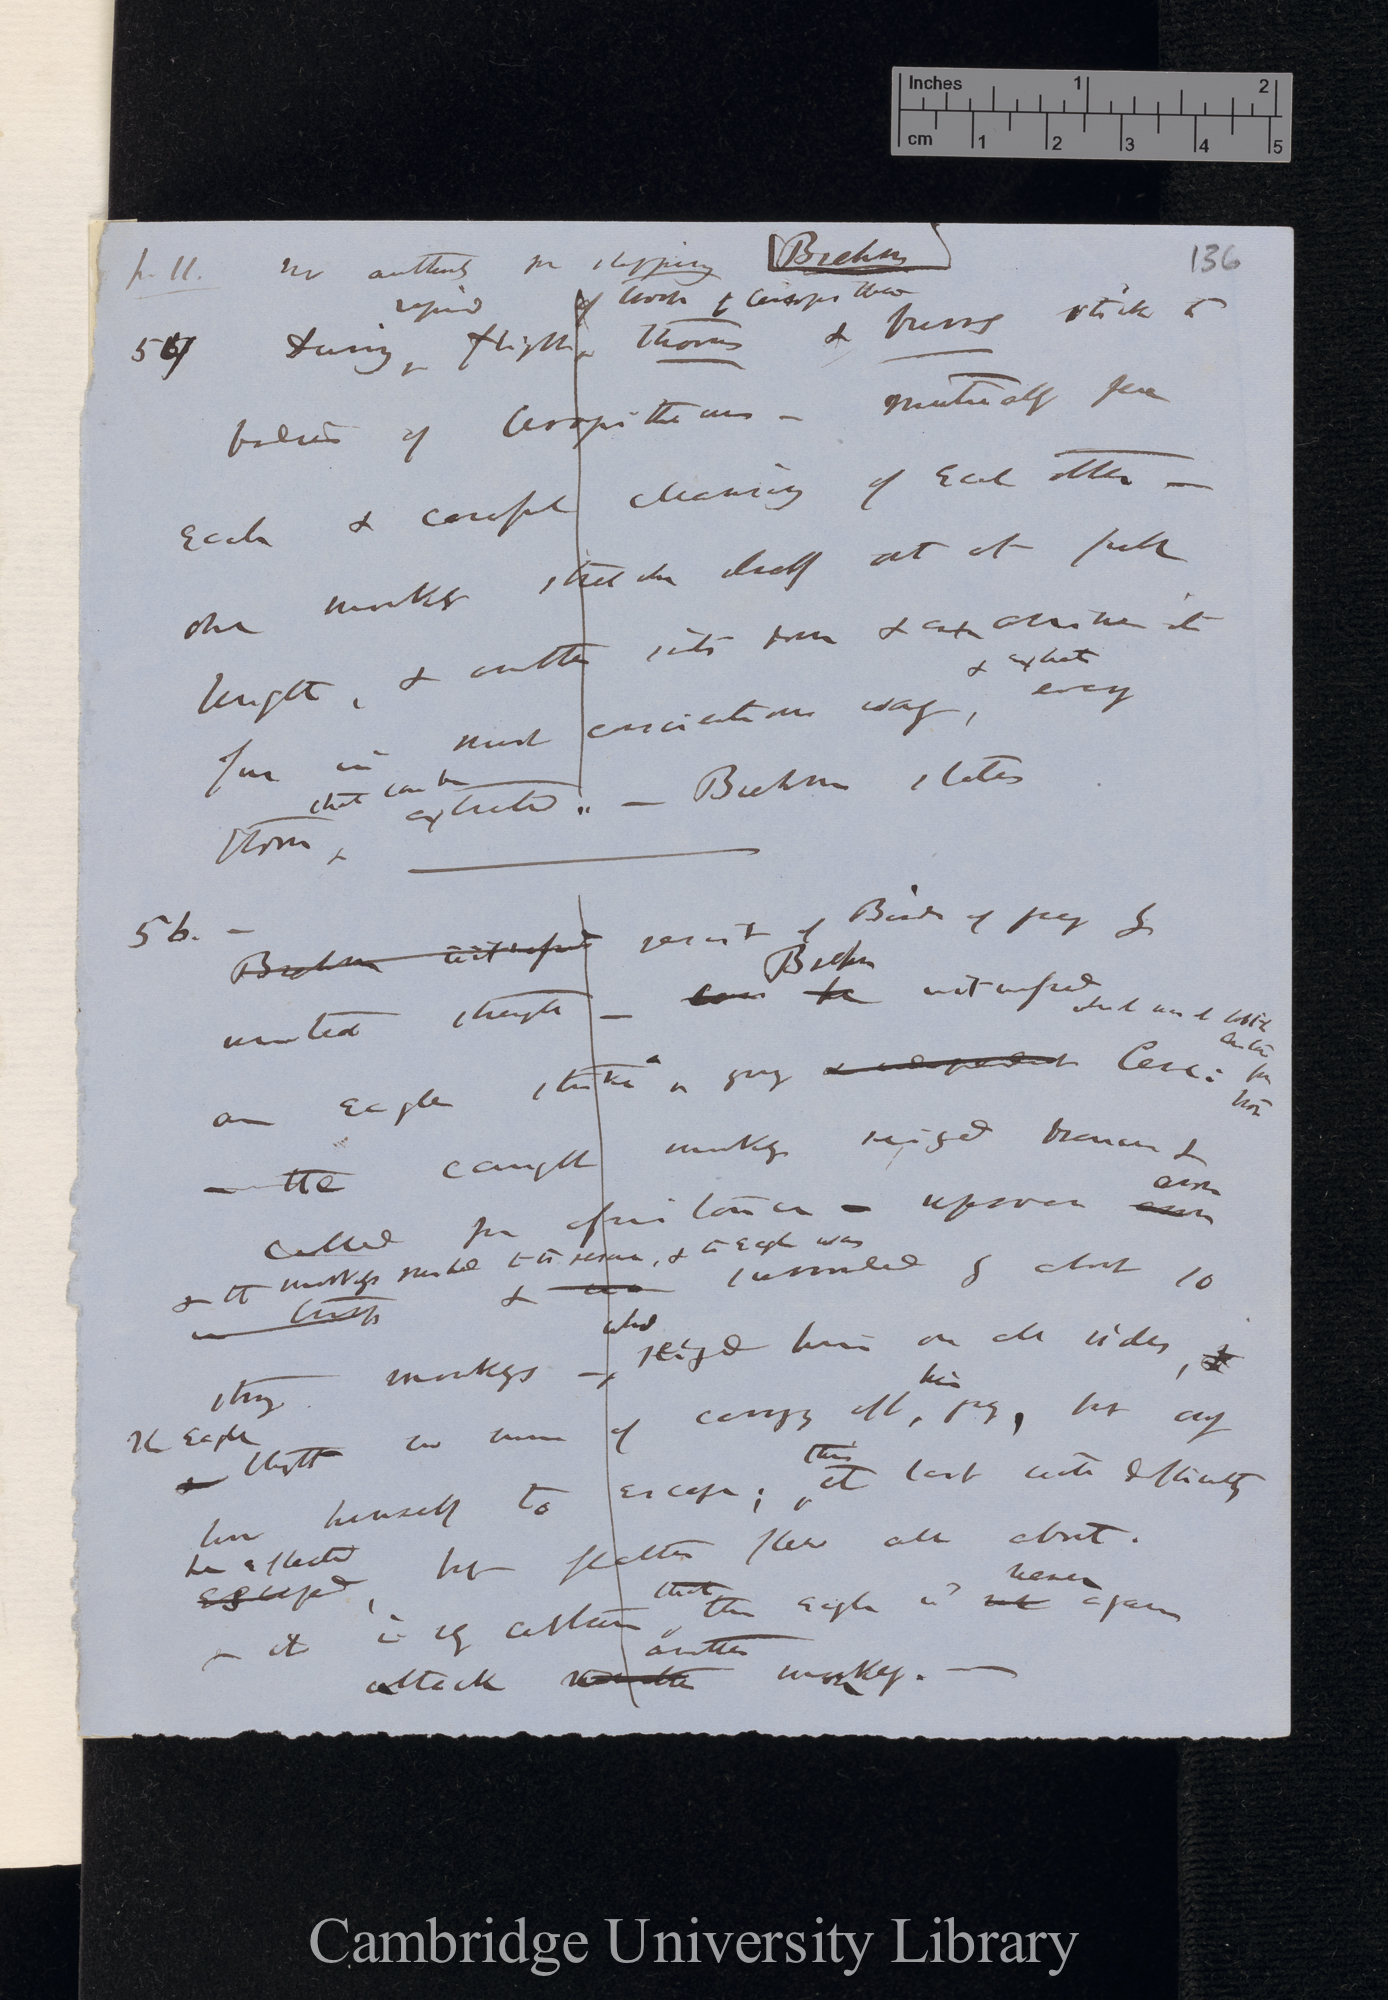 Inches 1 2
cm 1 2 3 4 5
136
p. 11. no authority for slipping Brehm
rapid of troop of Cercopithecus
57 During flight thorns & burrs stick to
bodies of Cercopithecus — mutually free
each & careful cleaning of each other —
one monkey stretches itself out at full
length, & another sits down & examines it
& extracts
fur in most conscientious way, every
that can be
thorn extracted." — Brehm states
56. — Brehm witnessed result of Birds of prey &
Brehm
united strength — can be witnessed
an eagle strike a young & independent Cerc:
— the caught monkey seized branch &
called for assistance — uproar arose
& the monkeys rushed to the rescue, & the eagle was
& surrounded by about 10
who
strong monkeys — seized him on all sides, &
The Eagle his
thought no more of carrying off prey, but only
this
how himself to escape; at last with difficulty
he effected
escaped, but feathers flew all about.
that never
— it is very certain this eagle will not again
another
attack monkey. —
Cambridge University Library